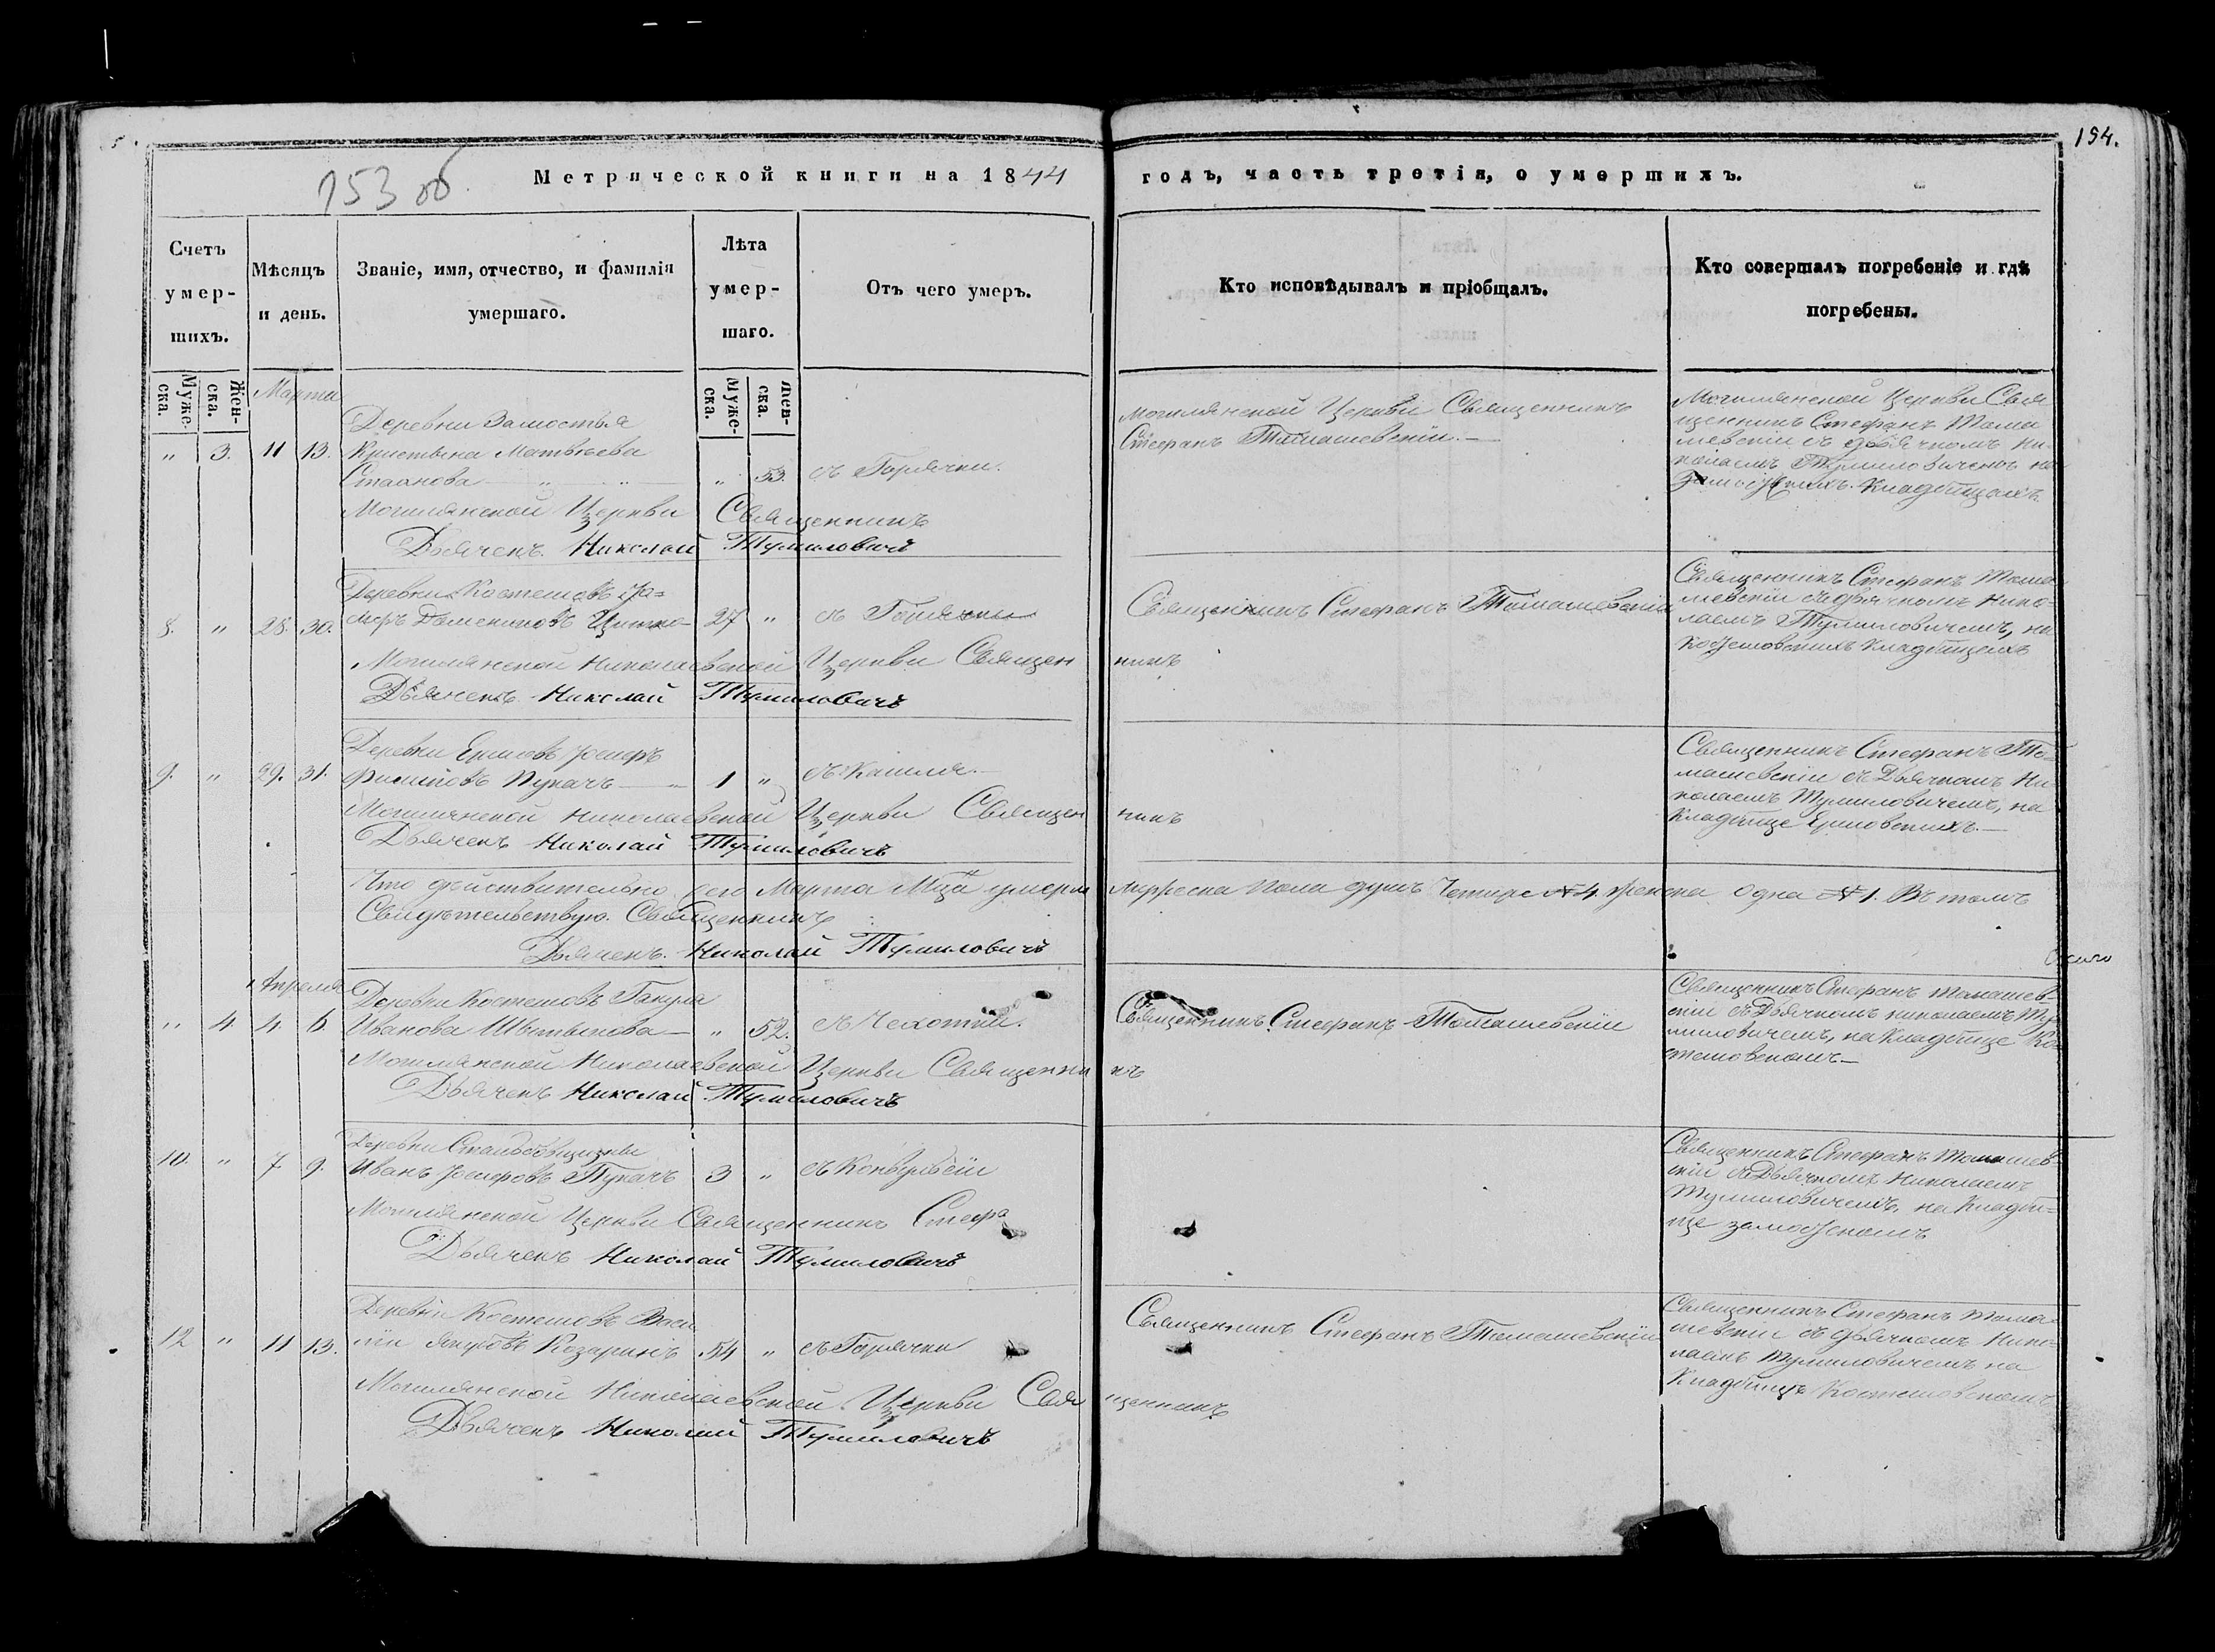 154.
153 об.
Метрической книги на 1844
годъ, часть третія, о умершихъ.
Счетъ умер-шихъ.
Мѣсяцъ и день.
Званіе, имя, отчество, и фамилія умершаго.
Лѣта умер-шаго.
Отъ чего умеръ.
Кто исповѣдывалъ и пріобщалъ.
Кто совершалъ погребеніе и гдѣ погребены.
Муже-ска.
Жен-ска.
Муже-ска.
Жен-ска.
Марта
Деревни Замостья
" 3. 11 13. Кристына Матвѣева
" 53. съ Горячки.
Могилянской Церкви Священникъ
Стефанъ Томашевскій.
Могилянской Церкви Свя
щенникъ Стефанъ Тома
шевскій съ дьячкомъ Ни
колаемъ Тумиловичемъ на
Кладбищахъ.
Могилянской Церкви Священникъ
Дьячекъ Николай Тумиловичъ
Деревни Костешовъ
8. " 28. 30. 27 " съ Горячки
Священникъ Стефанъ Томашевскій
Священникъ Стефанъ Тома
шевскій съ дьячкомъ Нико-
лаемъ Тумиловичемъ, на
Костешовскихъ Кладбищахъ
Могилянской Николаевской Церкви Священ никъ
Дьячекъ Николай Тумиловичъ
Деревни Ермовъ Іосифъ
9. " 29. 31. Филиповъ Пукачъ 1 " съ Кашля.
Священникъ Стефанъ То-
машевскій съ Дьячкомъ Ни
колаемъ Тумиловичемъ, на
Кладбище Ермовскихъ.
Могилянской Николаевской Церкви Священ никъ
Дьячекъ Николай Тумиловичъ
Что действительно сего Марта Мца умерло мужеска пола душъ Четыре №4. женска одна №1. Въ томъ
Свидѣтельствую. Священникъ
Дьячекъ Николай Тумиловичъ
Апреля
Деревни Костешовъ
" 4. 4. 6. Иванова " 52. съ Чахотки.
Священникъ Стефанъ Томашевскій
Священникъ Стефанъ Томашев-
скій съ Дьячкомъ Николаемъ Ту
миловичемъ, на Кладбище Ко-
стешовскомъ
Могилянской Николаевской Церкви Священни къ
Дьячекъ Николай Тумиловичъ
Деревни
10. " 7 9. Иванъ Іосифовъ Пукачъ 3 " съ Конвулсіи
Священникъ Стефанъ Томашев-
скій съ Дьячкомъ Николаемъ
Тумиловичемъ, на Кладби-
ще замостскомъ
Могилянской Церкви Священникъ Стефа
Дьячекъ Николай Тумиловичъ
Деревни Костешовъ Васи
12 " 11 13. лій Якубовъ Козаринъ 54 " съ Горячки
Священникъ Стефанъ Томашевскій
Священникъ Стефанъ Тома-
шевскій съ дьячкомъ Нико-
лаемъ Тумиловичемъ на
Кладбищѣ Костешовскомъ
Могилянской Николаевской Церкви Свя щенникъ
Дьячекъ Николай Тумиловичъ